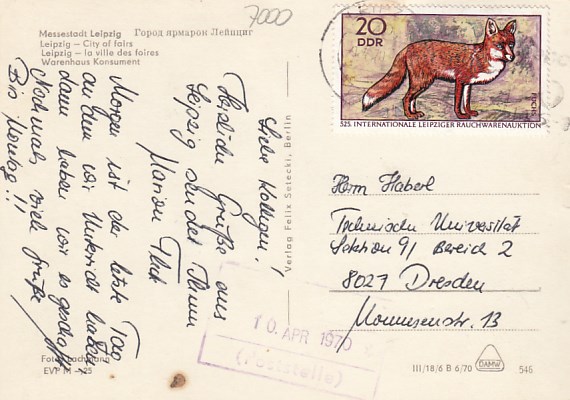 7000
Messestadt Leipzig Город ярмарок Лейпциг
Leipzig – City of fairs
Leipzig – la ville des foires
Warenhaus Konsument
20
DDR
525. INTERNATIONALE LEIPZIGER RAUCHWARENAUKTION
Liebe Kollegen!
Herzliche Grüße aus
Leipzig sendet Ihnen
Marion
Morgen ist der letzte Tag
an dem wir Unterricht haben
dann haben wir es geschafft
Nochmals viele Grüße
Bis Montag!!
Verlag Felix Setecki, Berlin
Herrn Haberl
Technische Universität
Sektion 9/ Bereich 2
8027 Dresden
Mommsenstr. 13
10. APR 1970
(Poststelle)
Foto: Lachmann
EVP M –.25
III/18/6 B 6/70
DAMW
546